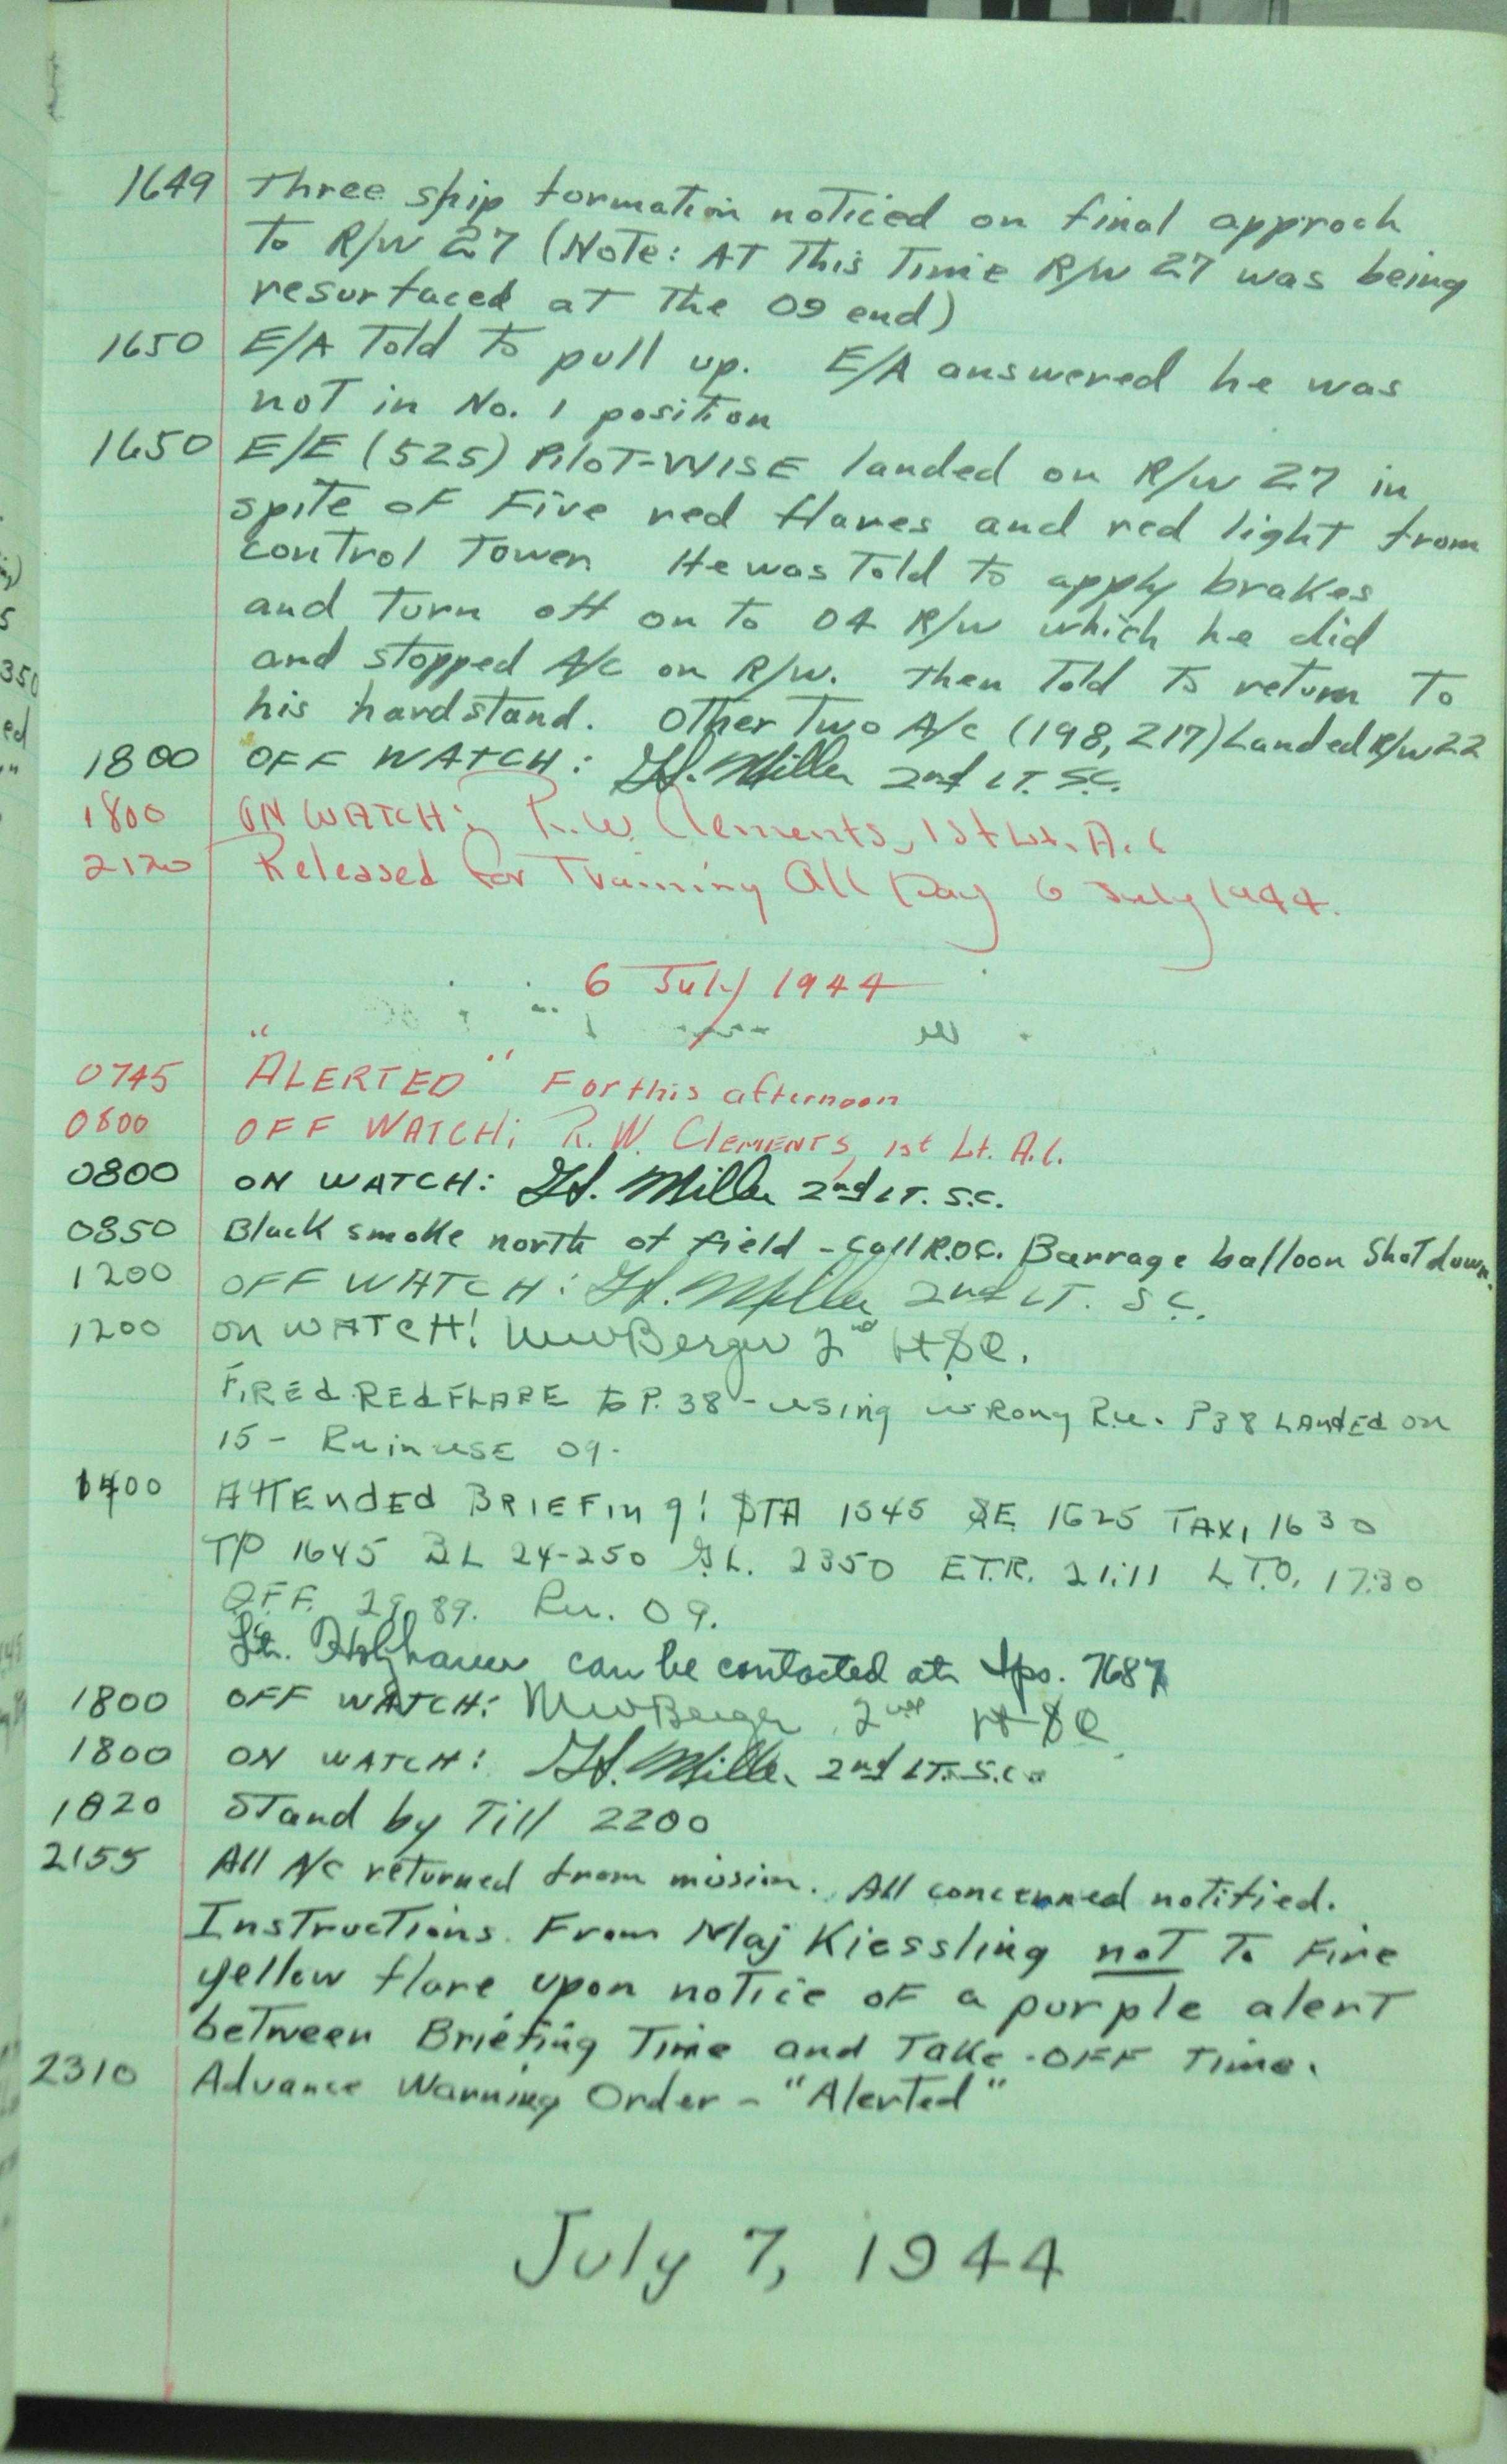 1649 Three ship formation noticed on final approch
to R/W 27 (Note: At this time R/W 27 was being
resurfaced at the 09 end)
1650 E/A Told to pull up. E/A answered he was
not in No. 1 position
1650 E/E (525) PILOT-WISE landed on R/W 27 in
spite of Five red flares and red light from
control Tower. He was Told to apply brakes
and turn off on to 04 R/W which he did
and stopped A/C on R/W. Then Told to return to
his hardstand. Other Two A/C (198, 217) Landed R/W 22
1800 OFF WATCH: Miller 2nd LT. S.C.
1800 ON WATCH: R.W. Clements, 1st Lt. A.C
2120 Released for Training All Day 6 July 1944.
6 July 1944
0745 "ALERTED" For this afternoon
0800 OFF WATCH: R. W. CLEMENTS, 1st Lt. A.C.
0800 ON WATCH: Miller 2nd LT. S.C.
0850 Black smoke north of field - Call R.O.C. Barrage balloon Shot down.
1200 OFF WATCH: Miller 2nd LT. S.C.
1200 ON WATCH! Berger 2nd Lt SC.
FIRED RED FLARE to P.38 - using wRong Rw. P38 LANdEd on
15 - Rw in USE 09.
1400 ATTENdEd BRIEFing! STA 1545 SE 1625 TAXI 1630
TP 1645 BL 24-250 G.L. 2350 E.T.R. 21:11 L.T.O. 17:30
Q.F.F. 29.89. Rw. 09.
Lt. can be contacted at Ips. 7687
1800 OFF WATCH: Berger 2nd Lt SC
1800 ON WATCH: Miller 2nd LT. S.C.
1820 Stand by Till 2200
2155 All A/C returned from mission. All concerned notified.
Instructions From Maj Kiessling not To Fire
yellow flare upon notice OF a purple alert
between Briefing Time and Take-OFF Time.
2310 Advance Warning Order - "Alerted"
July 7, 1944